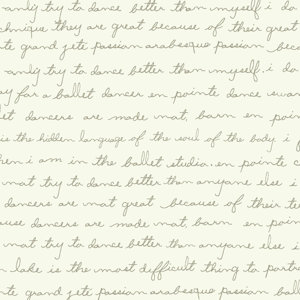 only try to dance better than myself. i do
technique they are great because of their great
te grand jete passion arabesque passion bec
only try to dance better than myself. i do
ay for a ballet dancer en pointe dance swan
at dancers are made not, born en poin
is the hidden language of the soul of the body. i f
hen i am in the ballet studio en pointe c
not try to dance better than anyone else i
dancers are not great because of their te
ause dancers are made not, born en poin
not try to dance better than anyone else i
n lake is the most difficult thing to portra
te grand jete passion arabesque passion ball